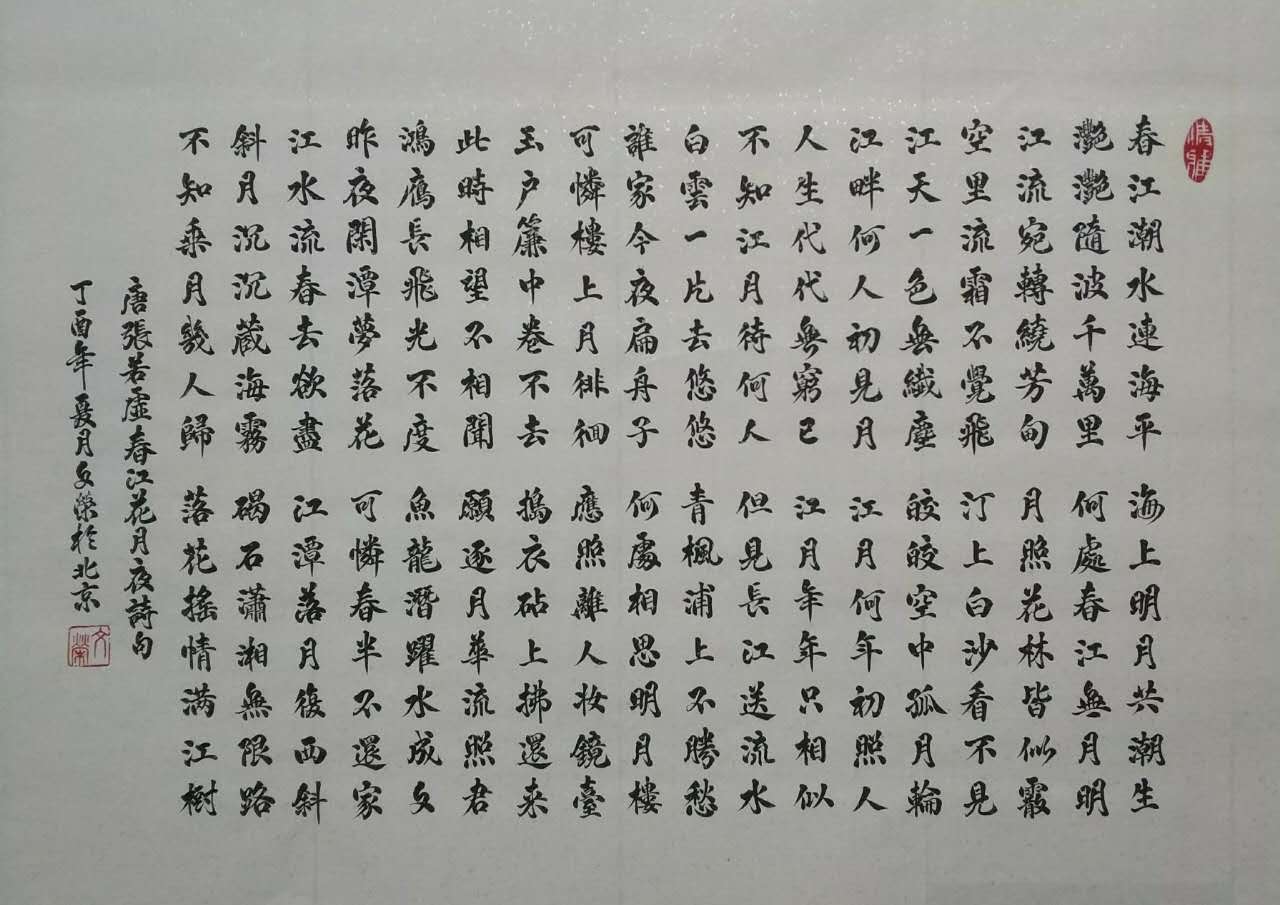 春江潮水連海平 海上明月共潮生
灧灧隨波千萬里 何處春江無月明
江流宛轉繞芳甸 月照花林皆似霰
空里流霜不覺飛 汀上白沙看不見
江天一色無纖塵 皎皎空中孤月輪
江畔何人初見月 江月何年初照人
人生代代無窮已 江月年年只相似
不知江月待何人 但見長江送流水
白雲一片去悠悠 青楓浦上不勝愁
誰家今夜扁舟子 何處相思明月樓
可憐樓上月徘徊 應照離人妆鏡臺
玉户簾中卷不去 搗衣砧上拂還来
此時相望不相聞 願逐月華流照君
鴻鴈長飛光不度 魚龍潛躍水成文
昨夜閑潭夢落花 可憐春半不還家
江水流春去欲盡 江潭落月復西斜
斜月沉沉藏海霧 碣石瀟湘無限路
不知乘月幾人歸 落花摇情满江樹
唐張若虛春江花月夜詩句
丁酉年夏月文榮於北京
文榮